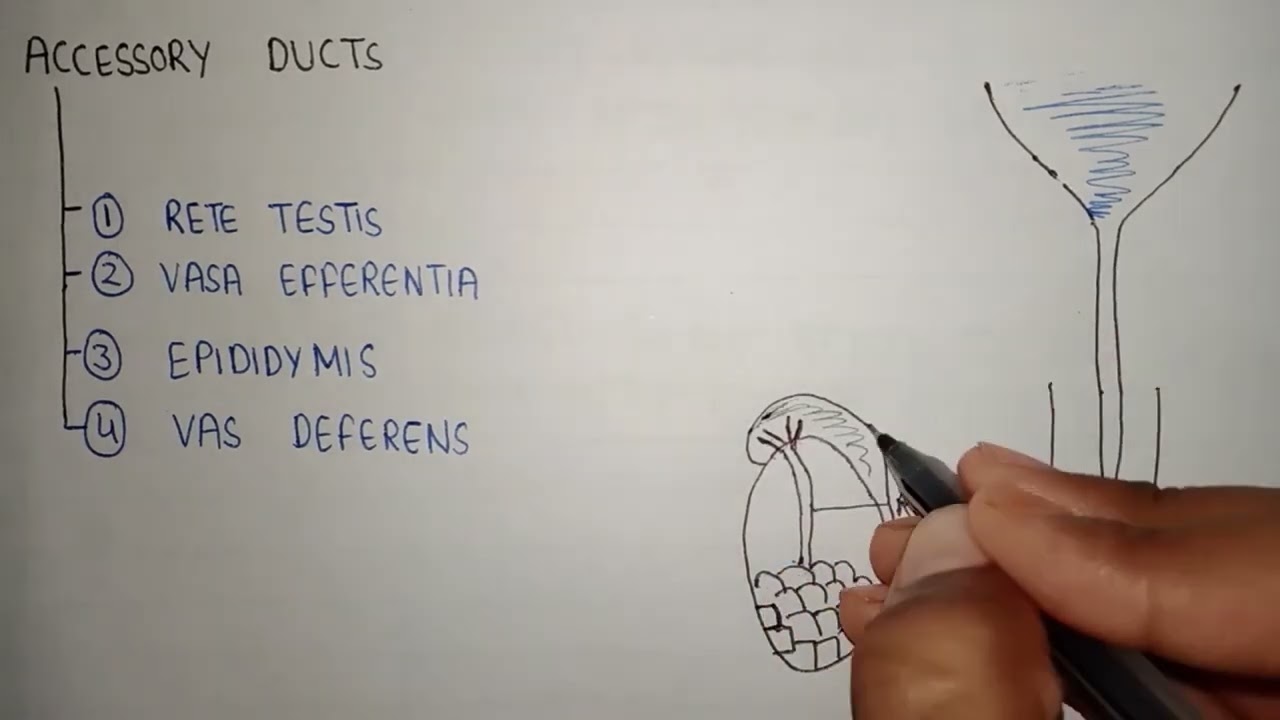 ACCESSORY DUCTS
1 RETE TESTIS
2 VASA EFFERENTIA
3 EPIDIDYMIS
4 VAS DEFERENS